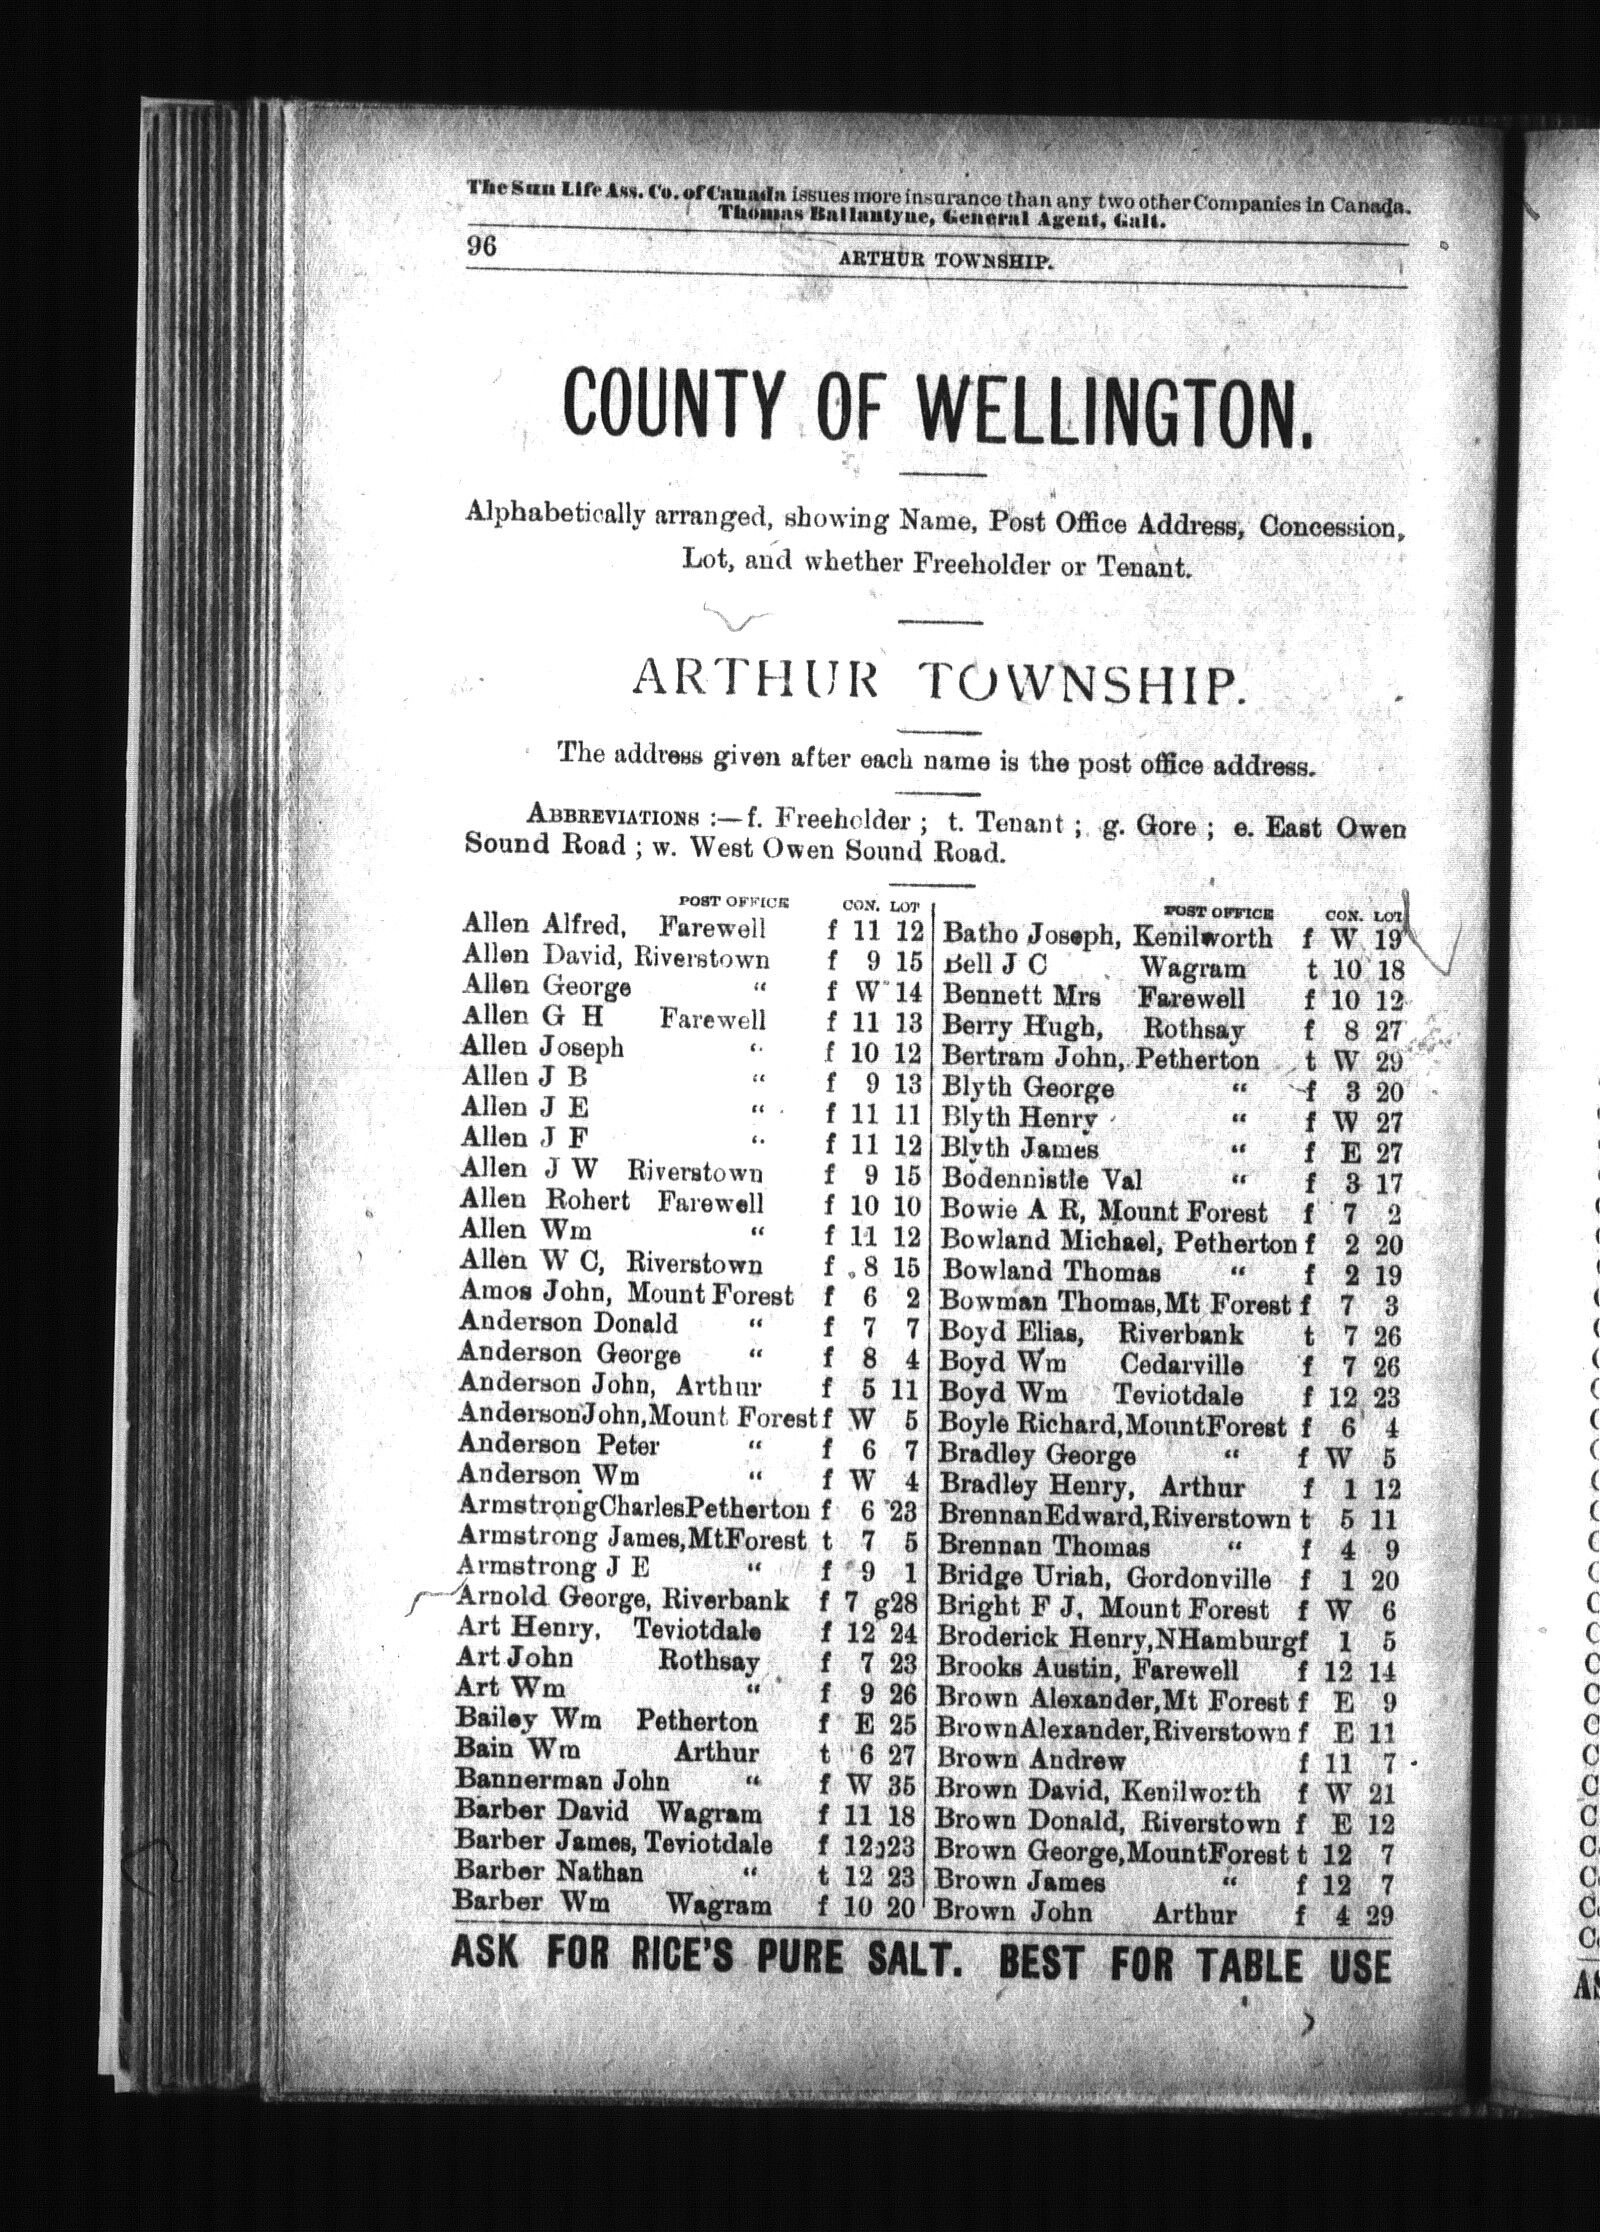 The Sun Life Ass. Co. of Canada issues more insurance than any two other Companies in Canada.
Thomas Ballantyne, General Agent, Galt.
96
ARTHUR TOWNSHIP.
COUNTY OF WELLINGTON.
Alphabetically arranged, showing Name, Post Office Address, Concession,
Lot, and whether Freeholder or Tenant.
ARTHUR TOWNSHIP.
The address given after each name is the post office address.
ABBREVIATIONS :—f. Freeholder ; t. Tenant ; g. Gore ; e. East Owen
Sound Road ; w. West Owen Sound Road.
POST OFFICE CON. LOT
Allen Alfred, Farewell f 11 12
Allen David, Riverstown f 9 15
Allen George “ f W 14
Allen G H Farewell f 11 13
Allen Joseph “ f 10 12
Allen J B “ f 9 13
Allen J E “ f 11 11
Allen J F “ f 11 12
Allen J W Riverstown f 9 15
Allen Rohert Farewell f 10 10
Allen Wm “ f 11 12
Allen W C, Riverstown f 8 15
Amos John, Mount Forest f 6 2
Anderson Donald “ f 7 7
Anderson George “ f 8 4
Anderson John, Arthur f 5 11
AndersonJohn,Mount Forest f W 5
Anderson Peter “ f 6 7
Anderson Wm “ f W 4
ArmstrongCharlesPetherton f 6 23
Armstrong James,MtForest t 7 5
Armstrong J E “ f 9 1
Arnold George, Riverbank f 7 g28
Art Henry, Teviotdale f 12 24
Art John Rothsay f 7 23
Art Wm “ f 9 26
Bailey Wm Petherton f E 25
Bain Wm Arthur t 6 27
Bannerman John “ f W 35
Barber David Wagram f 11 18
Barber James, Teviotdale f 12 23
Barber Nathan “ t 12 23
Barber Wm Wagram f 10 20
POST OFFICE CON. LOT
Batho Joseph, Kenilworth f W 19
Bell J C Wagram t 10 18
Bennett Mrs Farewell f 10 12
Berry Hugh, Rothsay f 8 27
Bertram John, Petherton t W 29
Blyth George “ f 3 20
Blyth Henry “ f W 27
Blyth James “ f E 27
Bodennistle Val “ f 3 17
Bowie A R, Mount Forest f 7 2
Bowland Michael, Petherton f 2 20
Bowland Thomas “ f 2 19
Bowman Thomas,Mt Forest f 7 3
Boyd Elias, Riverbank t 7 26
Boyd Wm Cedarville f 7 26
Boyd Wm Teviotdale f 12 23
Boyle Richard,MountForest f 6 4
Bradley George “ f W 5
Bradley Henry, Arthur f 1 12
BrennanEdward,Riverstown t 5 11
Brennan Thomas “ f 4 9
Bridge Uriah, Gordonville f 1 20
Bright F J, Mount Forest f W 6
Broderick Henry,NHamburgf 1 5
Brooks Austin, Farewell f 12 14
Brown Alexander,Mt Forest f E 9
BrownAlexander,Riverstown f E 11
Brown Andrew f 11 7
Brown David, Kenilworth f W 21
Brown Donald, Riverstown f E 12
Brown George,MountForest t 12 7
Brown James “ f 12 7
Brown John Arthur f 4 29
ASK FOR RICE'S PURE SALT. BEST FOR TABLE USE